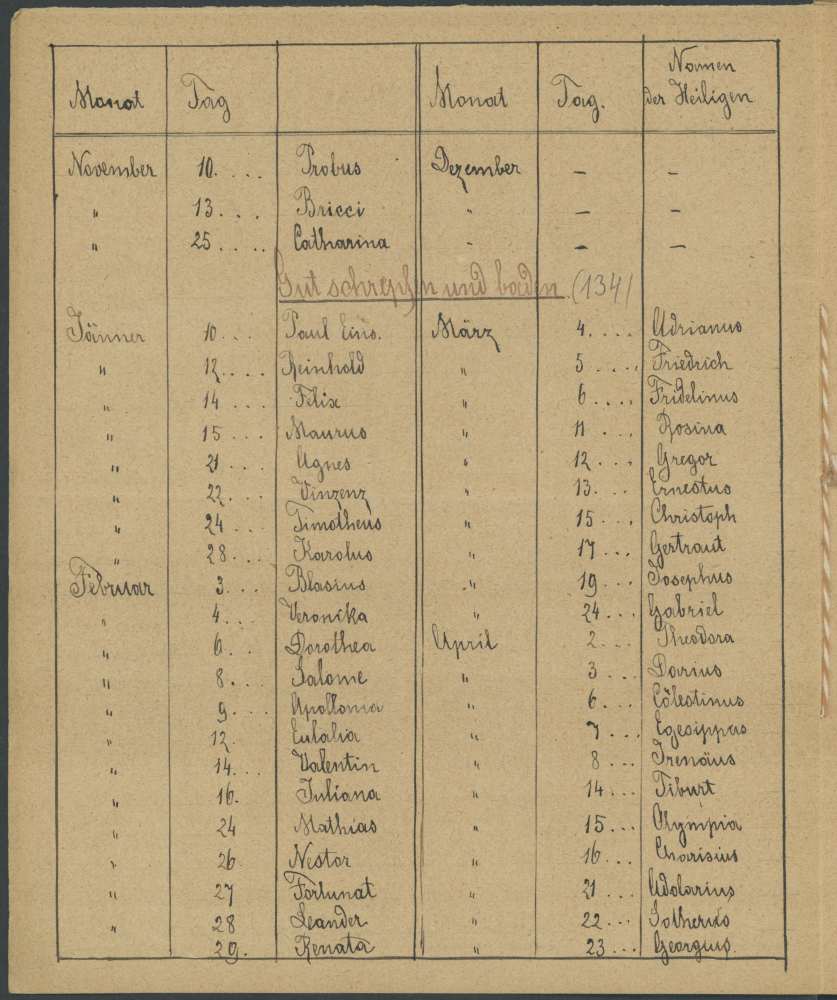 Monat Tag Monat Tag. Namen der Heiligen
November 10. . . . Probus Dezember – –
" 13. . . . Bricci " – –
" 25 . . . . Catharina " – –
Gut schrepfen und baden (134)
Jänner 10. . . Paul Eins. März 4. . . . Adrianus
" 12. . . . Reinhold " 5 . . . . Friedrich
" 14 . . . Felix " 6 . . . . Fridelinus
" 15 . . . Maurus " 11 . . . Rosina
" 21 . . . Agnes " 12. . . . Gregor
" 22. . . Vinzenz " 13. . . Ernestus
" 24 . . . Timotheus " 15 . . . Christoph
" 28. . . Karolus " 17 . . . Gertraut
Februar 3. . . Blasius " 19 . . . Josephus
" 4. . . Veronika " 24 . . . Gabriel
" 6. . Dorothea April 2. . . Theodora
" 8. . . Salome " 3. . . Darius
" 9. . . . Apollonia " 6. . . Cölestinus
" 12. Eulalia " 7 . . . Egesippus
" 14. . . Valentin " 8 . . . Irenäus
" 16. Juliana " 14 . . . Tiburt
" 24 Mathias " 15 . . . Olympia
" 26 Nestor " 16. . . Charisius
" 27 Fortunat " 21 . . . Adolarius
" 28 Leander " 22 . . .
29. Renata " 23 . . . Georgius.